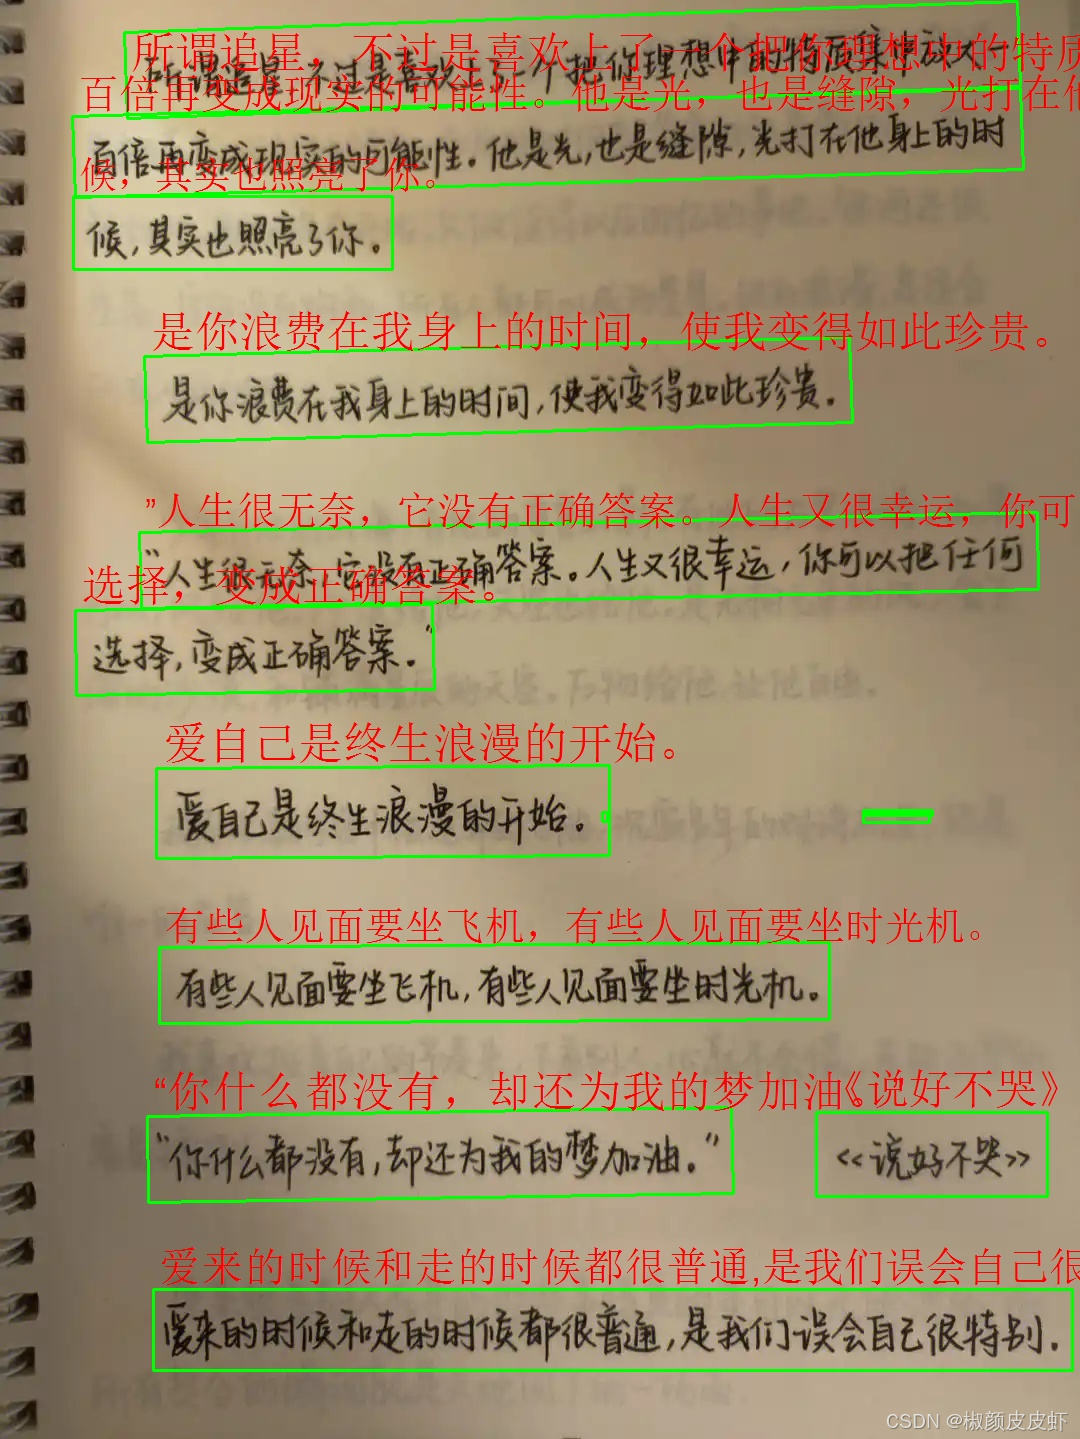 所谓追星，不过是喜欢上了一个把你理想中的特质
所谓追星,不过是喜欢上了一个把你理想中的特质集中放大十
百倍再变成现实的可能性。他是光，也是缝隙，光打在他
百倍再变成现实的可能性。他是光,也是缝隙,光打在他身上的时
候，其实也照亮了你。
候,其实也照亮了你。
是你浪费在我身上的时间，使我变得如此珍贵。
是你浪费在我身上的时间,使我变得如此珍贵。
”人生很无奈，它没有正确答案。人生又很幸运，你可
“人生很无奈,它没有正确答案。人生又很幸运,你可以把任何
选择，变成正确答案。
选择,变成正确答案。”
爱自己是终生浪漫的开始。
爱自己是终生浪漫的开始。
有些人见面要坐飞机，有些人见面要坐时光机。
有些人见面要坐飞机,有些人见面要坐时光机。
“你什么都没有，却还为我的梦加油。《说好不哭》
“你什么都没有,却还为我的梦加油。” <<说好不哭>>
爱来的时候和走的时候都很普通,是我们误会自己很
爱来的时候和走的时候都很普通,是我们误会自己很特别.
CSDN @椒颜皮皮虾